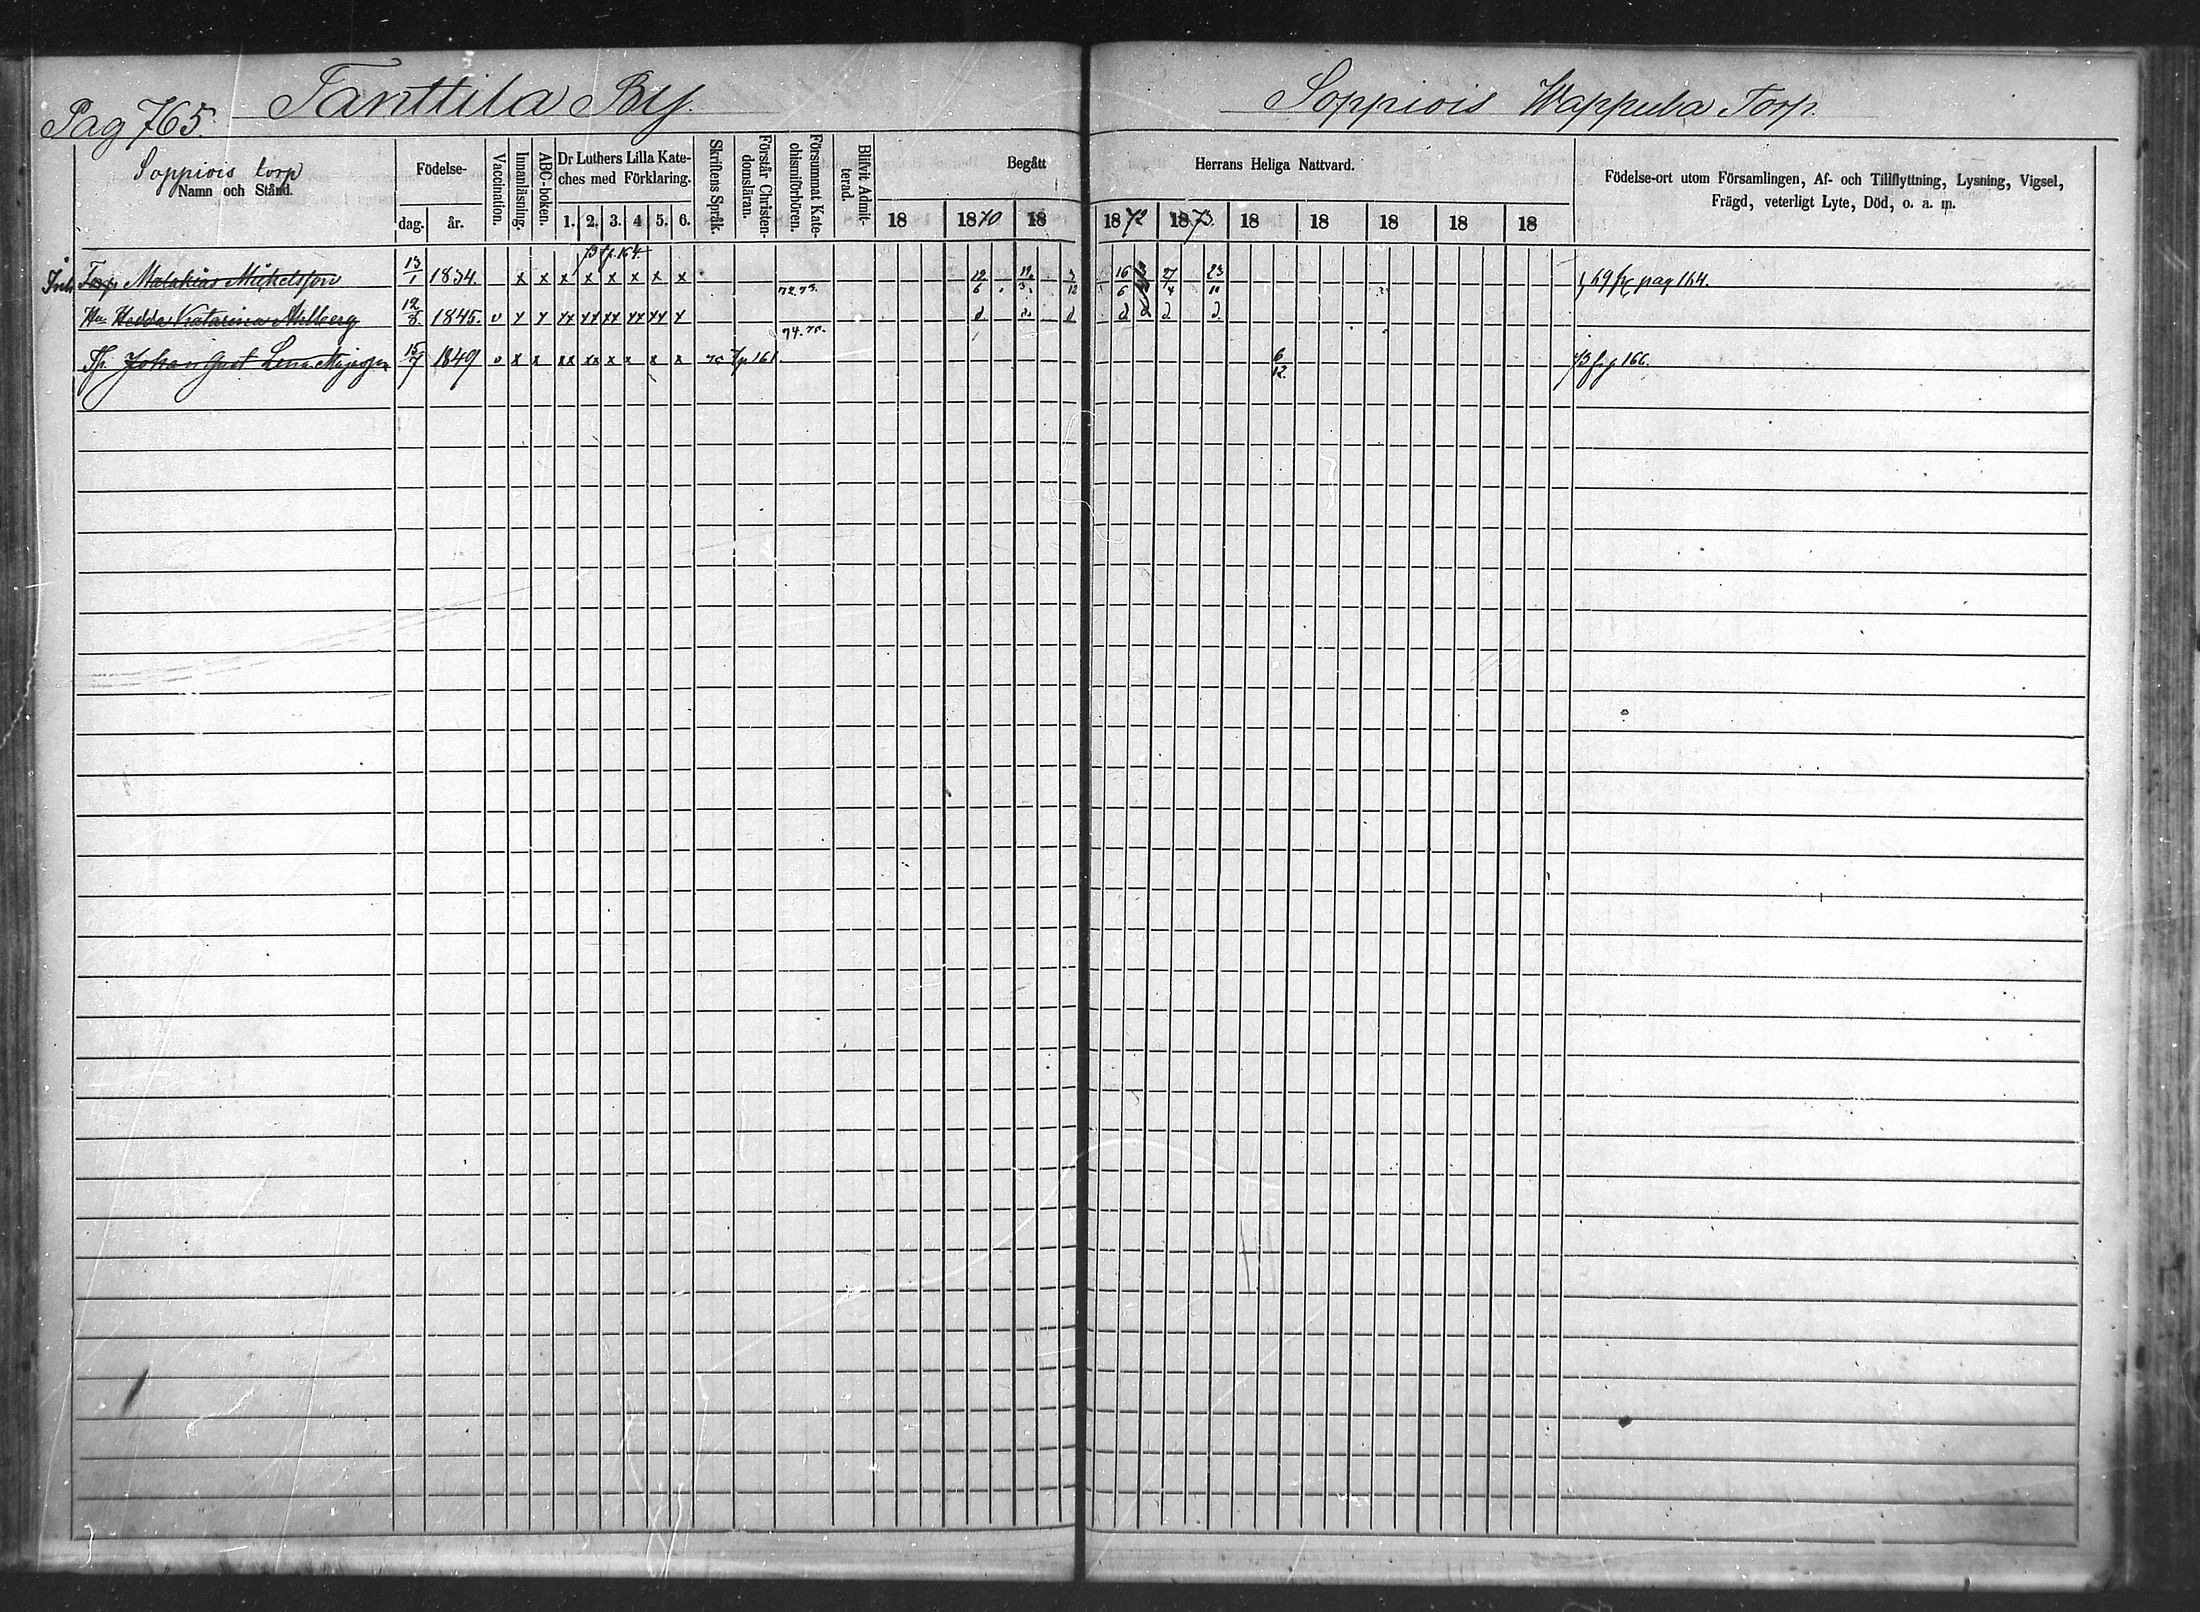 Pag 765. Tanttila By. Soppiois Wappula Torp.
Soppiois torp
Namn och Stånd.
Födelse-
dag. år.
Vaccination.
Innanläsning.
ABC-boken.
Dr Luthers Lilla Kate-
ches med Förklaring.
1. 2. 3. 4 5. 6.
Skriftens Språk.
Förstår Christen-
domsläran.
Försummat Kate-
chismiförhören.
Blifvit Admit-
terad.
Begått Herrans Heliga Nattvard.
18 1870 18 1872 1873. 18 18 18 18 18
Födelse-ort utom Församlingen, Af- och Tillflyttning, Lysning, Vigsel,
Frägd, veterligt Lyte, Död, o. a. m.
Torp Malakias Mikelsson 13/1 1834. x x x x x x x x 72.73. 12/6 16/6 27/4 23/11 69 pag 164.
Hu Hedda Katarina Ahlberg 12/8 1845. v x x xx xx xx xx xx x 74.75.
Johan Gust 15/7 1849 v x x xx xx x x x x 75 161 6/12. 73 166.